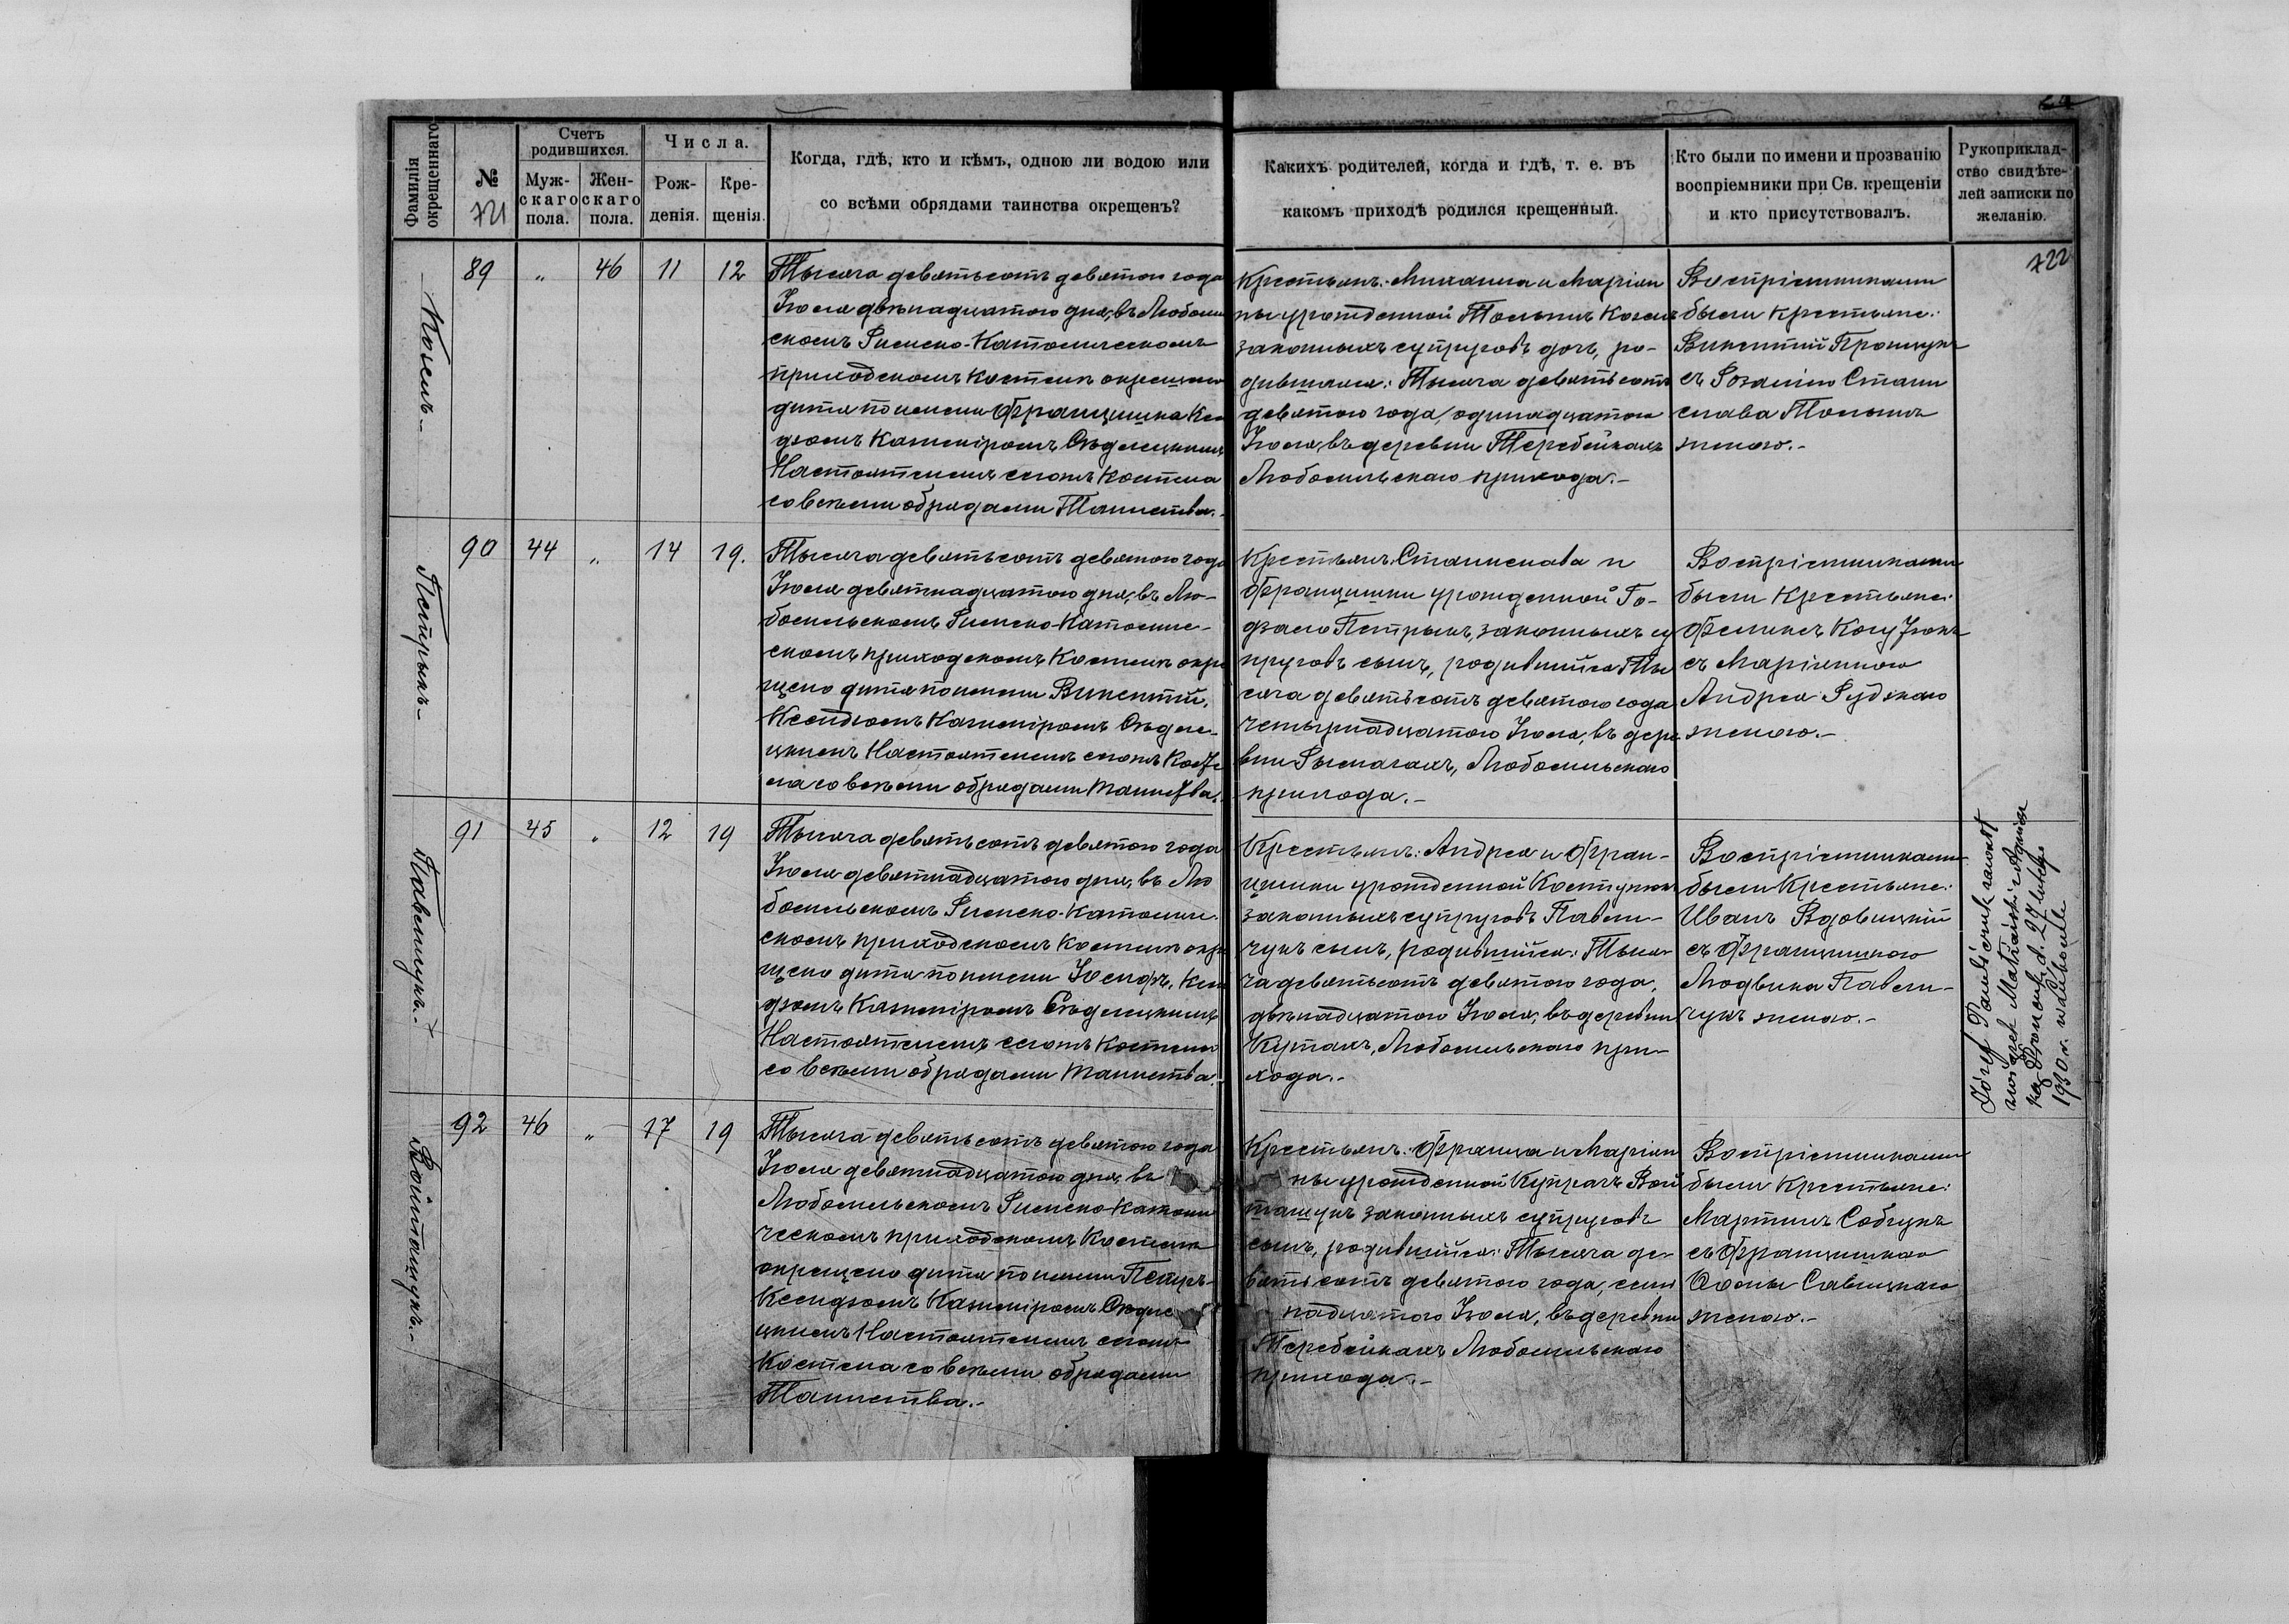 24
Фамилія окрещеннаго
№
721
Счетъ родившихся.
Муж-
скаго
пола.
Жен-
скаго
пола.
Числа.
Рож-
денія.
Кре-
щенія.
Когда, гдѣ, кто и кѣмъ, одною ли водою или
со всѣми обрядами таинства окрещенъ?
Какихъ родителей, когда и гдѣ, т. е. въ
какомъ приходѣ родился крещенный.
Кто были по имени и прозванію
воспріемники при Св. крещеніи
и кто присутствовалъ.
Рукоприклад-
ство свидѣте-
лей записки по
желанію.
722
89 „ 46 11 12
Тысяча девятьсотъ девятого года
Іюля двѣнадцатого дня, въ Любомль
скомъ Римско-Католическомъ
приходскомъ Костелѣ окрещено
дитя по имени Францишка Ксен
дзомъ Казиміромъ Сѣдлецкимъ
Настоятелемъ сего-жъ Костела
со всѣми обрядами Таинства.
Крестьянъ: Михаила и Маріян
ны урожденной
законныхъ супруговъ дочь, ро-
дившаяся: Тысяча девятьсотъ
девятого года, одинадцатого
Іюля, въ деревни Теребейкахъ
Любомльскаго прихода.-
Воспріемниками
были Крестьяне:
Викентій
съ Розалією Стани
слава
женою.-
90 44 „ 14 19.
Петрыкъ-
Тысяча девятьсотъ девятого года
Іюля девятнадцатого дня, въ Лю-
бомльскомъ Римско-Католиче-
скомъ приходскомъ Костелѣ окре
щено дитя по имени Викентій,
Ксендзомъ Казиміромъ Сѣдле-
цкимъ Настоятелемъ сего-жъ Косте
ла со всѣми обрядами Таинства.
Крестьянъ: Станислава и
Францишки урожденной Го-
дзало Петрыкъ, законныхъ су
пруговъ сынъ, родившійся: Ты
сяча девятьсотъ девятого года
четырнадцатого Іюля, въ дере
вни Рымачахъ, Любомльскаго
прихода.-
Воспріемниками
были Крестьяне:
Феликсъ
съ Маріянною
Андрея Рудзкаго
женою.-
91 45 „ 12 19
Павельчукъ.-
Тысяча девятьсотъ девятого года
Іюля девятнадцатого дня, въ Лю
бомльскомъ Римско-Католиче-
скомъ приходскомъ Костелѣ окре
щено дитя по имени Іосифъ, Ксен
дзомъ Казиміромъ Сѣдлецкимъ
Настоятелемъ сего-жъ Костела
со всѣми обрядами Таинства.
Крестьянъ: Андрея и Фран-
цишки урожденной
законныхъ супруговъ Павель-
чукъ сынъ, родившійся: Тыся-
ча девятьсотъ девятого года,
двѣнадцатого Іюля, въ деревни
Кутахъ, Любомльскаго при-
хода.-
Воспріемниками
были Крестьяне:
Иванъ Вдовицкій
съ Францишкою
Людвика Павель-
чукъ женою.-
Józef Pawelczuk zawarł
związek Małżeński z
d. 27 lutego
1930 r. w Lubomlu
92 46 „ 17 19
Войташукъ.-
Тысяча девятьсотъ девятого года
Іюля девятнадцатого дня, въ
Любомльскомъ Римско-Католи
ческомъ приходскомъ Костелѣ
окрещено дитя по имени Петръ-
Ксендзомъ Казиміромъ Сѣдле
цкимъ Настоятелемъ сего-жъ
Костела со всѣми обрядами
Таинства.-
Крестьянъ: Франца и Маріян
ны урожденной Купрачъ Вой
ташукъ законныхъ супруговъ
сынъ, родившійся: Тысяча де-
вятьсотъ девятого года, семь
надцатого Іюля, въ деревни
Теребейкахъ Любомльскаго
прихода.-
Воспріемниками
были Крестьяне:
Мартинъ Собчукъ
съ Францишкою
Савицкаго
женою.-